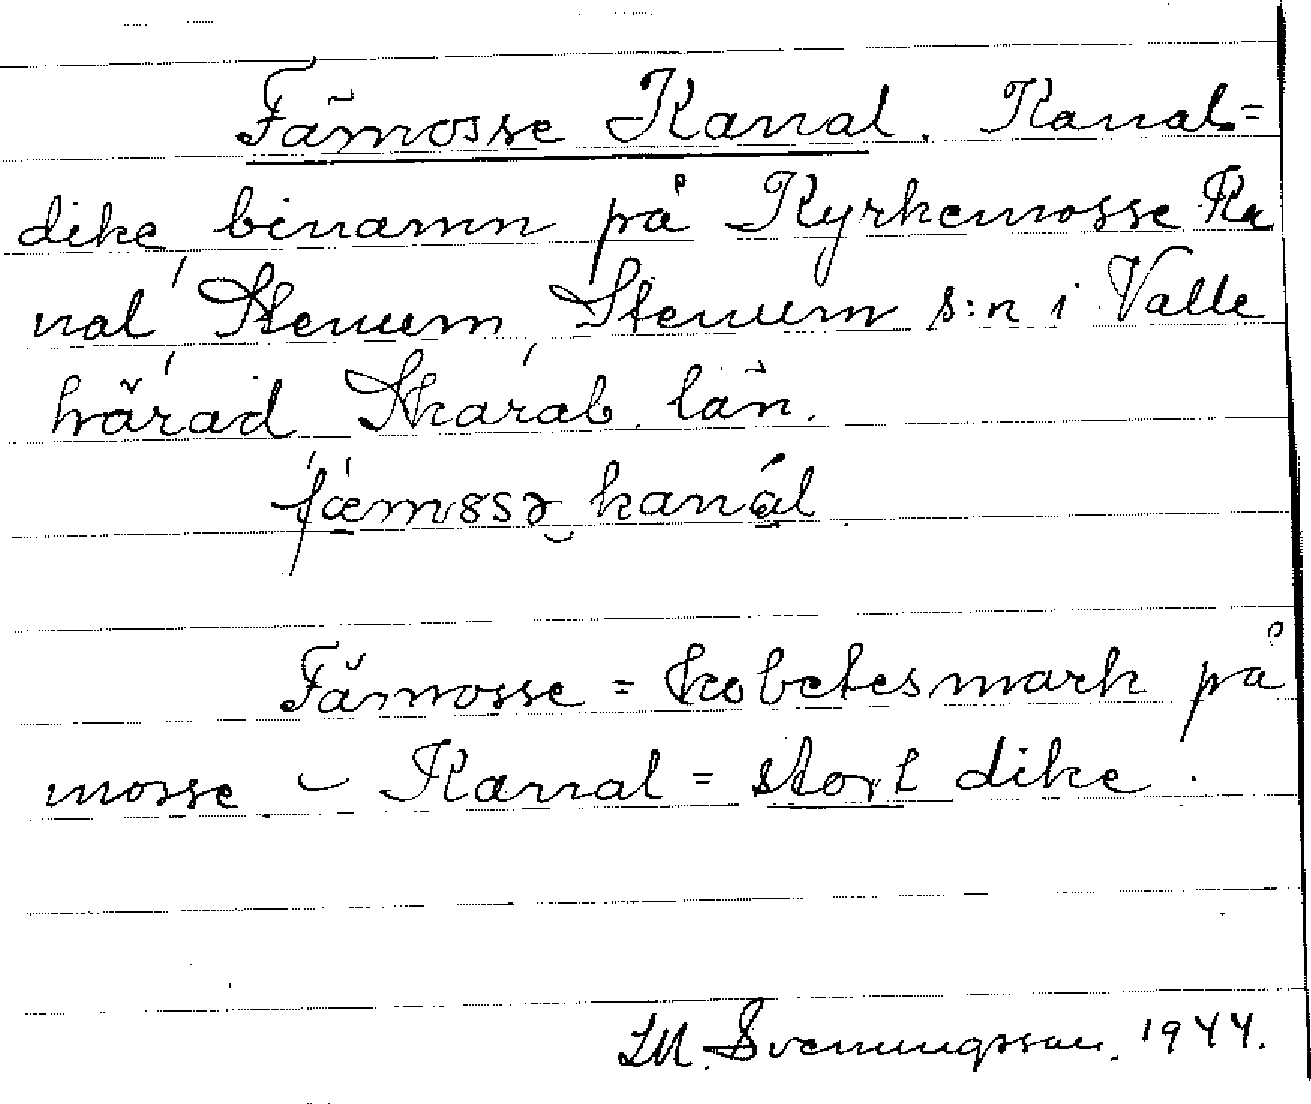 Fämosse Kanal. Kanal=
dike binamn på Kyrkemosse Ka
nal Stenum Stenum s:n i Valle
härad Skarab. län.
Fämosse = kobetesmark på
mosse - Kanal = stort dike.
Svenungsson. 1944.